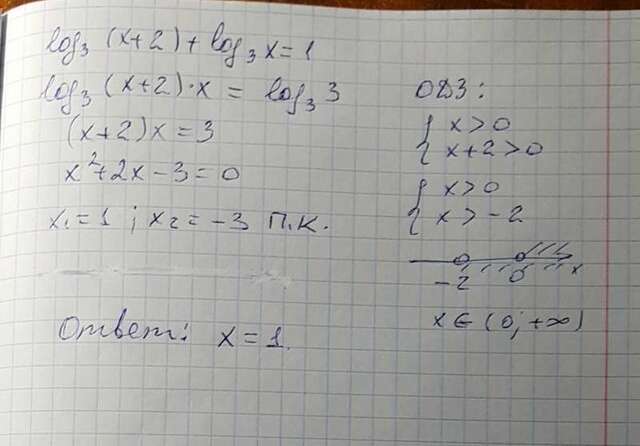 log₃ (x+2) + log₃ x = 1
log₃ (x+2)·x = log₃ 3
(x+2)x = 3
x²+2x-3=0
x₁=1; x₂=-3 п.к.
Ответ: x=1.
ОДЗ:
{ x>0
{ x+2>0
{ x>0
{ x>-2
-2 0 x
x∈(0; +∞)